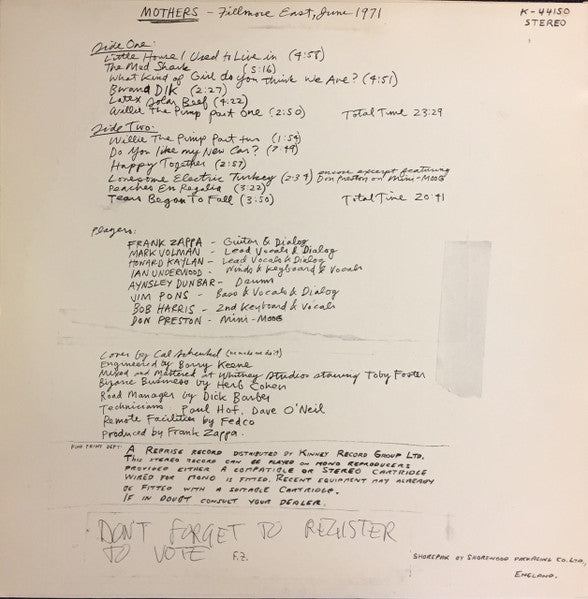 MOTHERS - Fillmore East, June 1971
K-44150
STEREO
Side One
Little House I Used to Live in (4:58)
The Mud Shark (5:16)
What Kind of Girl do you think We Are? (4:51)
Bwana DIK (2:27)
Latex Solar Beef (4:22)
Willie The Pimp Part One (2:50) Total Time 23:29
Side Two:
Willie The Pimp Part two (1:54)
Do You like my New Car? (7:49)
Happy Together (2:57)
Lonesome Electric Turkey (2:34) encore excerpt featuring Don Preston on Mini-MOOG
Peaches En Regalia (3:22)
Tears Began To Fall (3:50) Total Time 20:41
Players:
FRANK ZAPPA - Guitar & Dialog
MARK VOLMAN - Lead Vocals & Dialog
HOWARD KAYLAN - Lead Vocals & Dialog
IAN UNDERWOOD - Winds & Keyboard & Vocals
AYNSLEY DUNBAR - Drums
JIM PONS - Bass & Vocals & Dialog
BOB HARRIS - 2nd Keyboard & Vocals
DON PRESTON - Mini-MOOG
Cover by Cal Schenkel (he made me do it)
Engineered by Barry Keene
Mixed and Mastered at Whitney Studios starring Toby Foster
Bizarre Business by Herb Cohen
Road Manager by Dick Barber
Technicians Paul Hof, Dave O'Neil
Remote Facilities by Fedco
Produced by Frank Zappa.
FINE PRINT DEPT:
A REPRISE RECORD DISTRIBUTED BY KINNEY RECORD GROUP LTD.
THIS STEREO RECORD CAN BE PLAYED ON MONO REPRODUCERS
PROVIDED EITHER A COMPATIBLE OR STEREO CARTRIDGE
WIRED FOR MONO IS FITTED. RECENT EQUIPMENT MAY ALREADY
BE FITTED WITH A SUITABLE CARTRIDGE.
IF IN DOUBT CONSULT YOUR DEALER.
DON'T FORGET TO REGISTER
TO VOTE F.Z.
SHOREPAK BY SHOREWOOD PACKAGING CO. LTD,
ENGLAND.